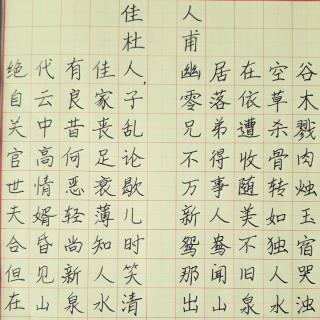 佳人
杜甫
绝代有佳人, 幽居在空谷
自云良家子 零落依草木
关中昔丧乱 兄弟遭杀戮
官高何足论 不得收骨肉
世情恶衰歇 万事随转烛
夫婿轻薄儿 新人美如玉
合昏尚知时 鸳鸯不独宿
但见新人笑 那闻旧人哭
在山泉水清 出山泉水浊